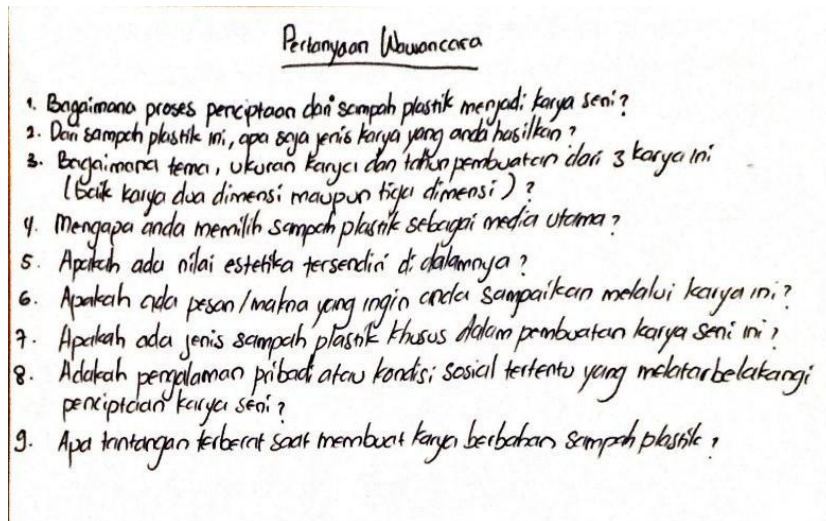 Pertanyaan Wawancara
1. Bagaimana proses penciptaan dari sampah plastik menjadi karya seni?
2. Dari sampah plastik ini, apa saja jenis karya yang anda hasilkan?
3. Bagaimana tema, ukuran karya dan tahun pembuatan dari 3 karya ini
(baik karya dua dimensi maupun tiga dimensi)?
4. Mengapa anda memilih sampah plastik sebagai media utama?
5. Apakah ada nilai estetika tersendiri di dalamnya?
6. Apakah ada pesan/makna yang ingin anda sampaikan melalui karya ini?
7. Apakah ada jenis sampah plastik khusus dalam pembuatan karya seni ini?
8. Adakah pengalaman pribadi atau kondisi sosial tertentu yang melatarbelakangi
penciptaan karya seni?
9. Apa tantangan terberat saat membuat karya berbahan sampah plastik?